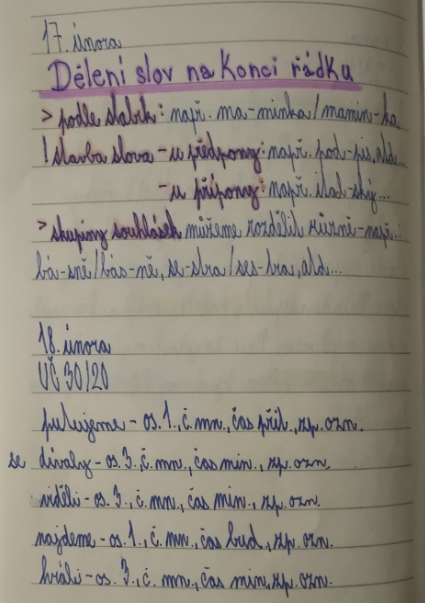 17. února
Dělení slov na konci řádku
> podle slabik: např. ma-minka/mamin-ka
! stavba slova - u předpony: např. pod-pis, atd...
- u přípony: např. slad-ský...
> skupiny souhlásek můžeme rozdělit různě - např.:
bá-sně/bás-ně, se-stra/ses-tra, atd...
18. února
UČ 30/20
putujeme - os. 1., č. mn., čas přít., zp. ozn.
se dívaly - os. 3., č. mn., čas min., zp. ozn.
viděli - os. 3., č. mn., čas min., zp. ozn.
najdeme - os. 1., č. mn., čas bud., zp. ozn.
hráli - os. 3., č. mn., čas min, zp. ozn.